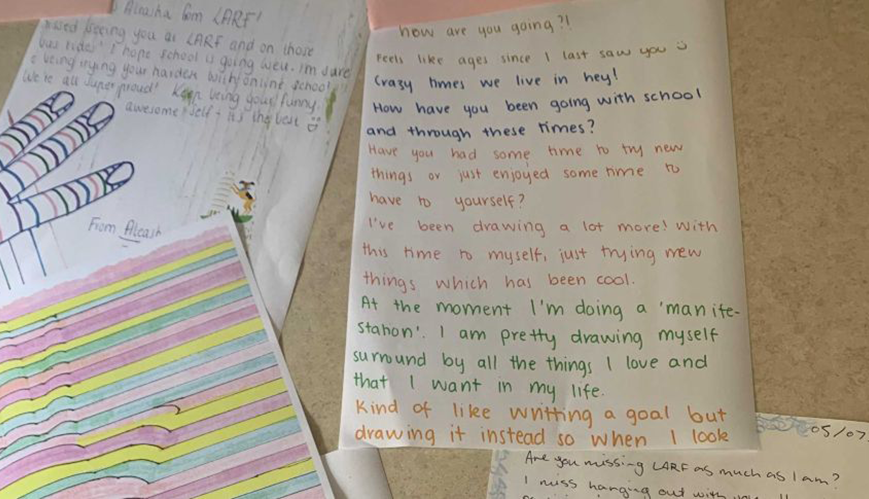 Aleasha from LARF!
missed seeing you at LARF and on those
bus rides! I hope school is going well. I'm sure
being trying your hardest with online school!
We're all super proud! Keep being your funny,
awesome self - it's the best
From Aleash
how are you going?!
Feels like ages since I last saw you
Crazy times we live in hey!
How have you been going with school
and through these times?
Have you had some time to try new
things or just enjoyed some time to
have to yourself?
I've been drawing a lot more! With
this time to myself, just trying new
things which has been cool.
At the moment I'm doing a 'manife-
station'. I am pretty drawing myself
surround by all the things I love and
that I want in my life.
Kind of like writting a goal but
drawing it instead so when I look
05/07
Are you missing LARF as much as I am?
I miss hanging out with you